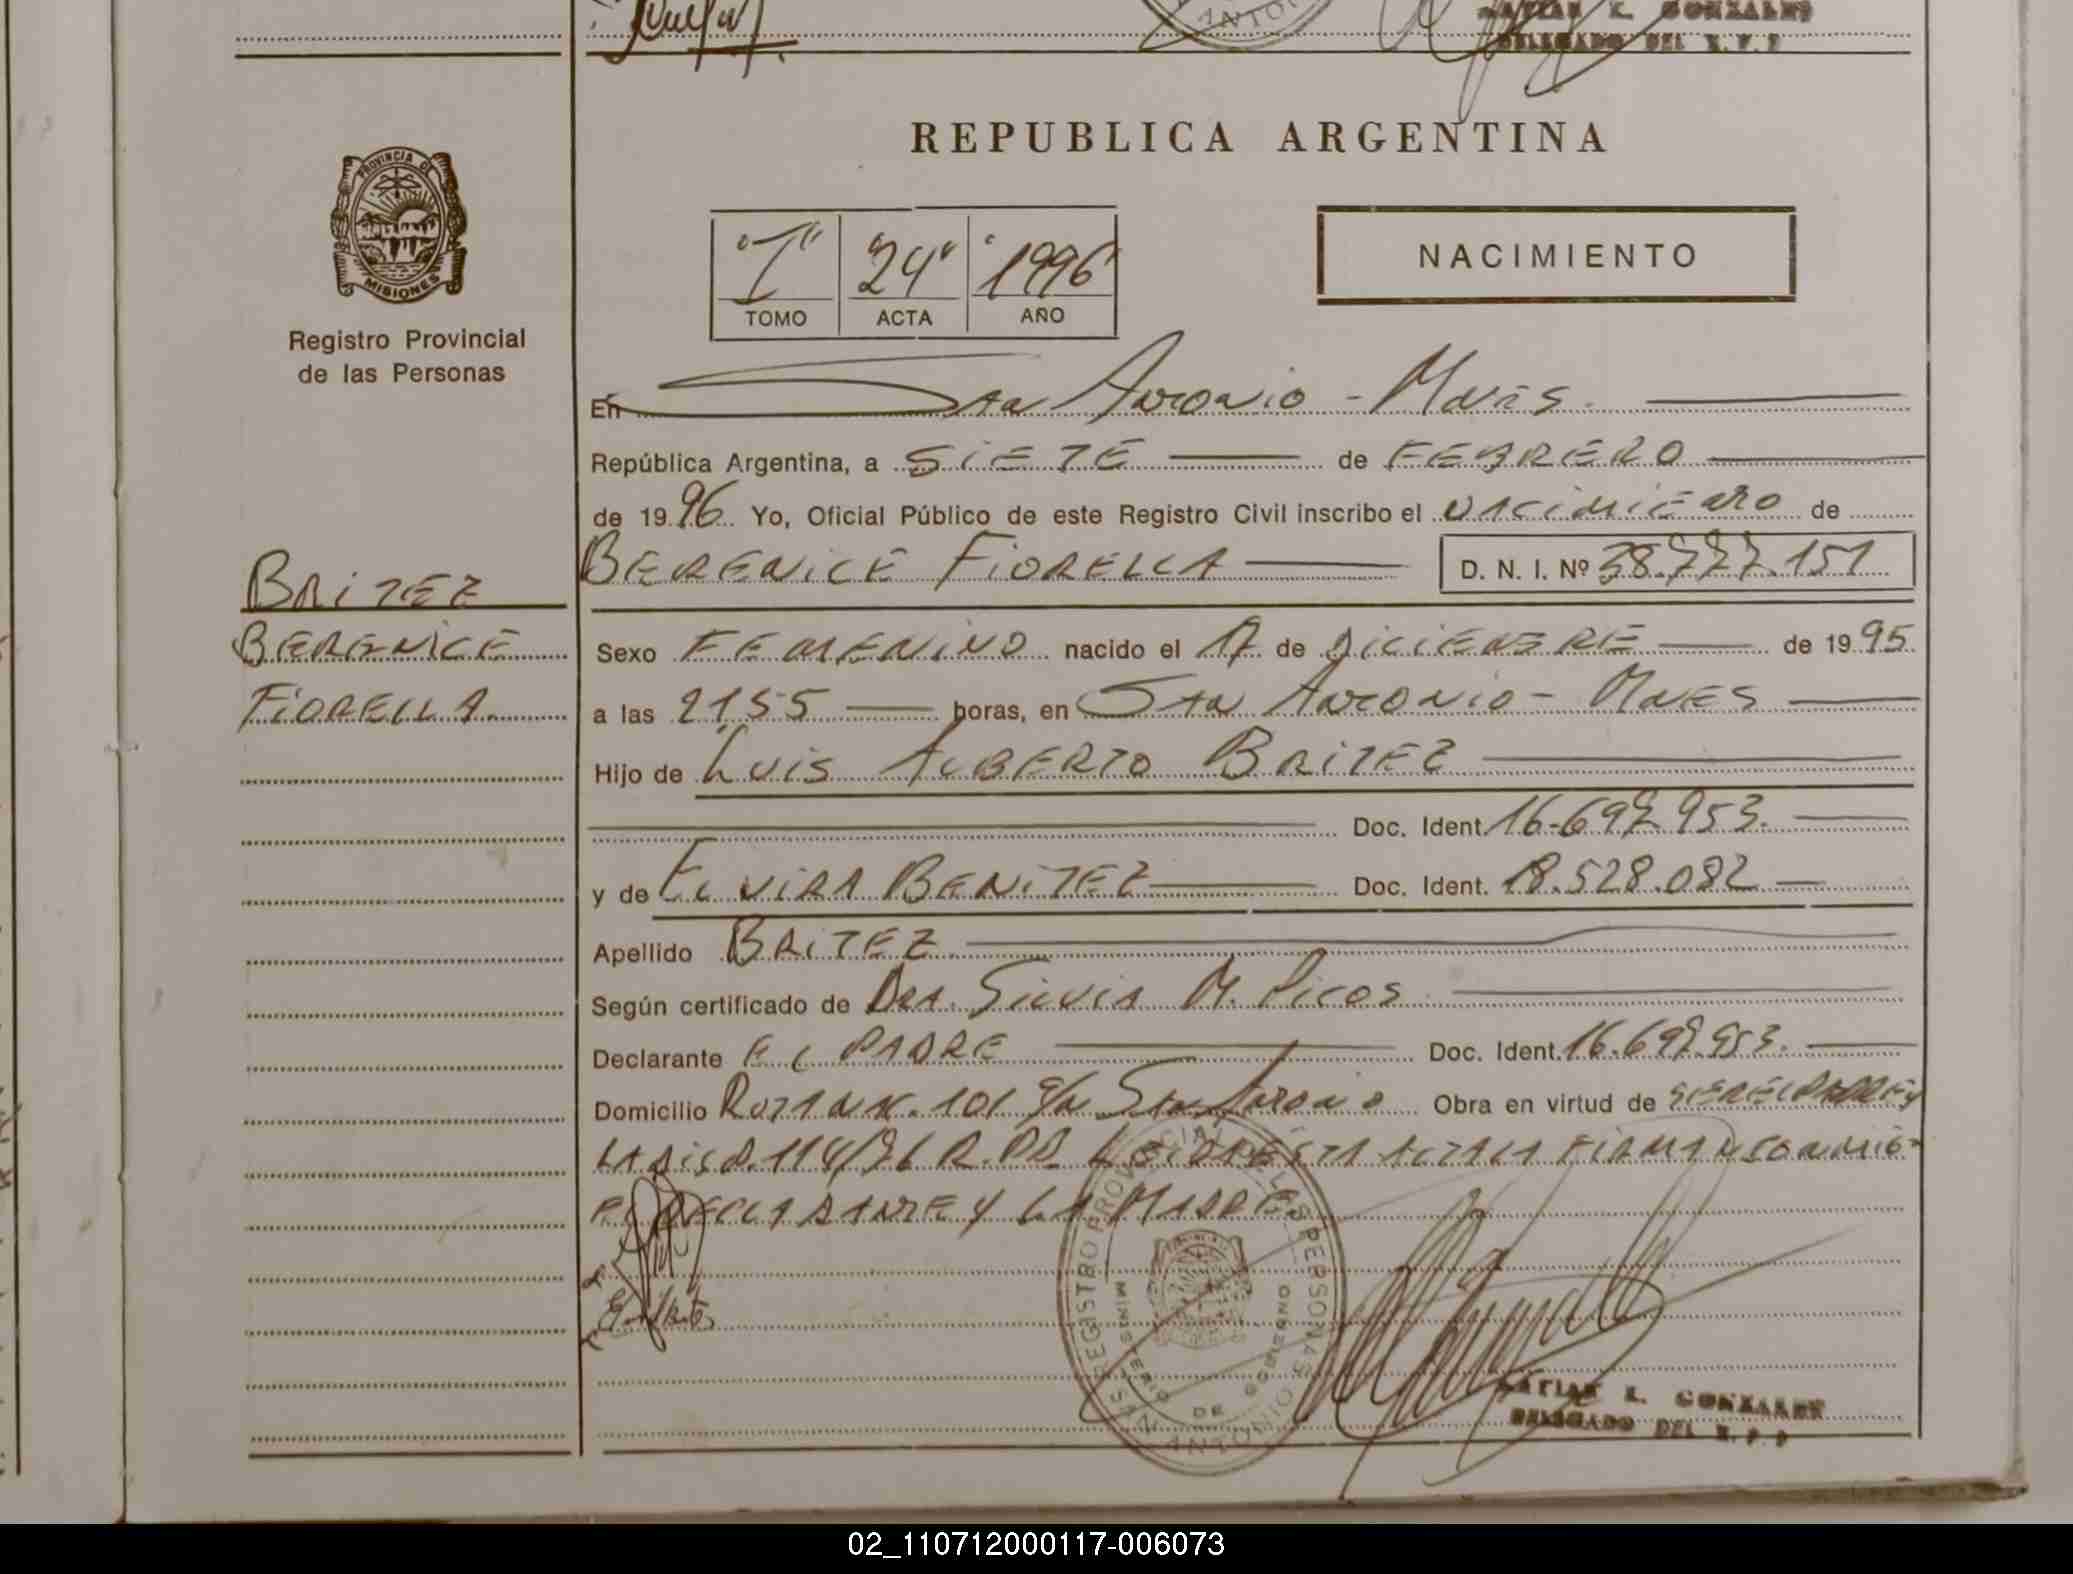 DELEGADO DEL R.P.P
REPUBLICA ARGENTINA
PROVINCIA DE
MISIONES
Registro Provincial
de las Personas
"I" "24" "1996"
TOMO ACTA AÑO
NACIMIENTO
En San Antonio - Mnes.
República Argentina, a SIETE de FEBRERO
de 1996 Yo, Oficial Público de este Registro Civil inscribo el NACIMIENTO de
BERENICE FIORELLA D. N. I. Nº 38.777.151
BRITEZ
BERENICE
FIORELLA
Sexo FEMENINO nacido el 17 de DICIEMBRE de 1995
a las 2155 horas, en SAN ANTONIO - MNES
Hijo de LUIS ALBERTO BRITEZ
Doc. Ident. 16.697.953.
y de ELVIRA BENITEZ Doc. Ident. 18.528.082
Apellido BRITEZ
Según certificado de DRA. SILVIA M. PICOS
Declarante EL PADRE Doc. Ident. 16.697.953.
Domicilio 101 S/N San Antonio Obra en virtud de
LA 114/96 R.P.P. LEIDA ESTA ACTA LA FIRMAN CONMIGO
EL DECLARANTE Y LA MADRE.
REGISTRO PROVINCIAL DE LAS PERSONAS
MINISTERIO DE GOBIERNO
SAN ANTONIO
L. GONZALES
DELEGADO DEL R.P.P
02_110712000117-006073